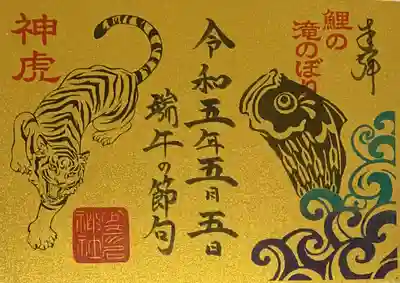 奉拝
鯉の
滝のぼり
令和五年五月五日
端午の節句
神社
神虎